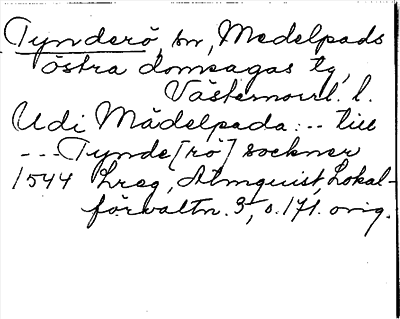 Tynderö, sn, Medelpads
östra domsagas tg,
Västernorrl. l.
Udi Mädelpada ... till
--- Tynde[rö] sockner
1544 Lreg, Almquist, Lokal-
förvaltn. 3, s. 171. orig.